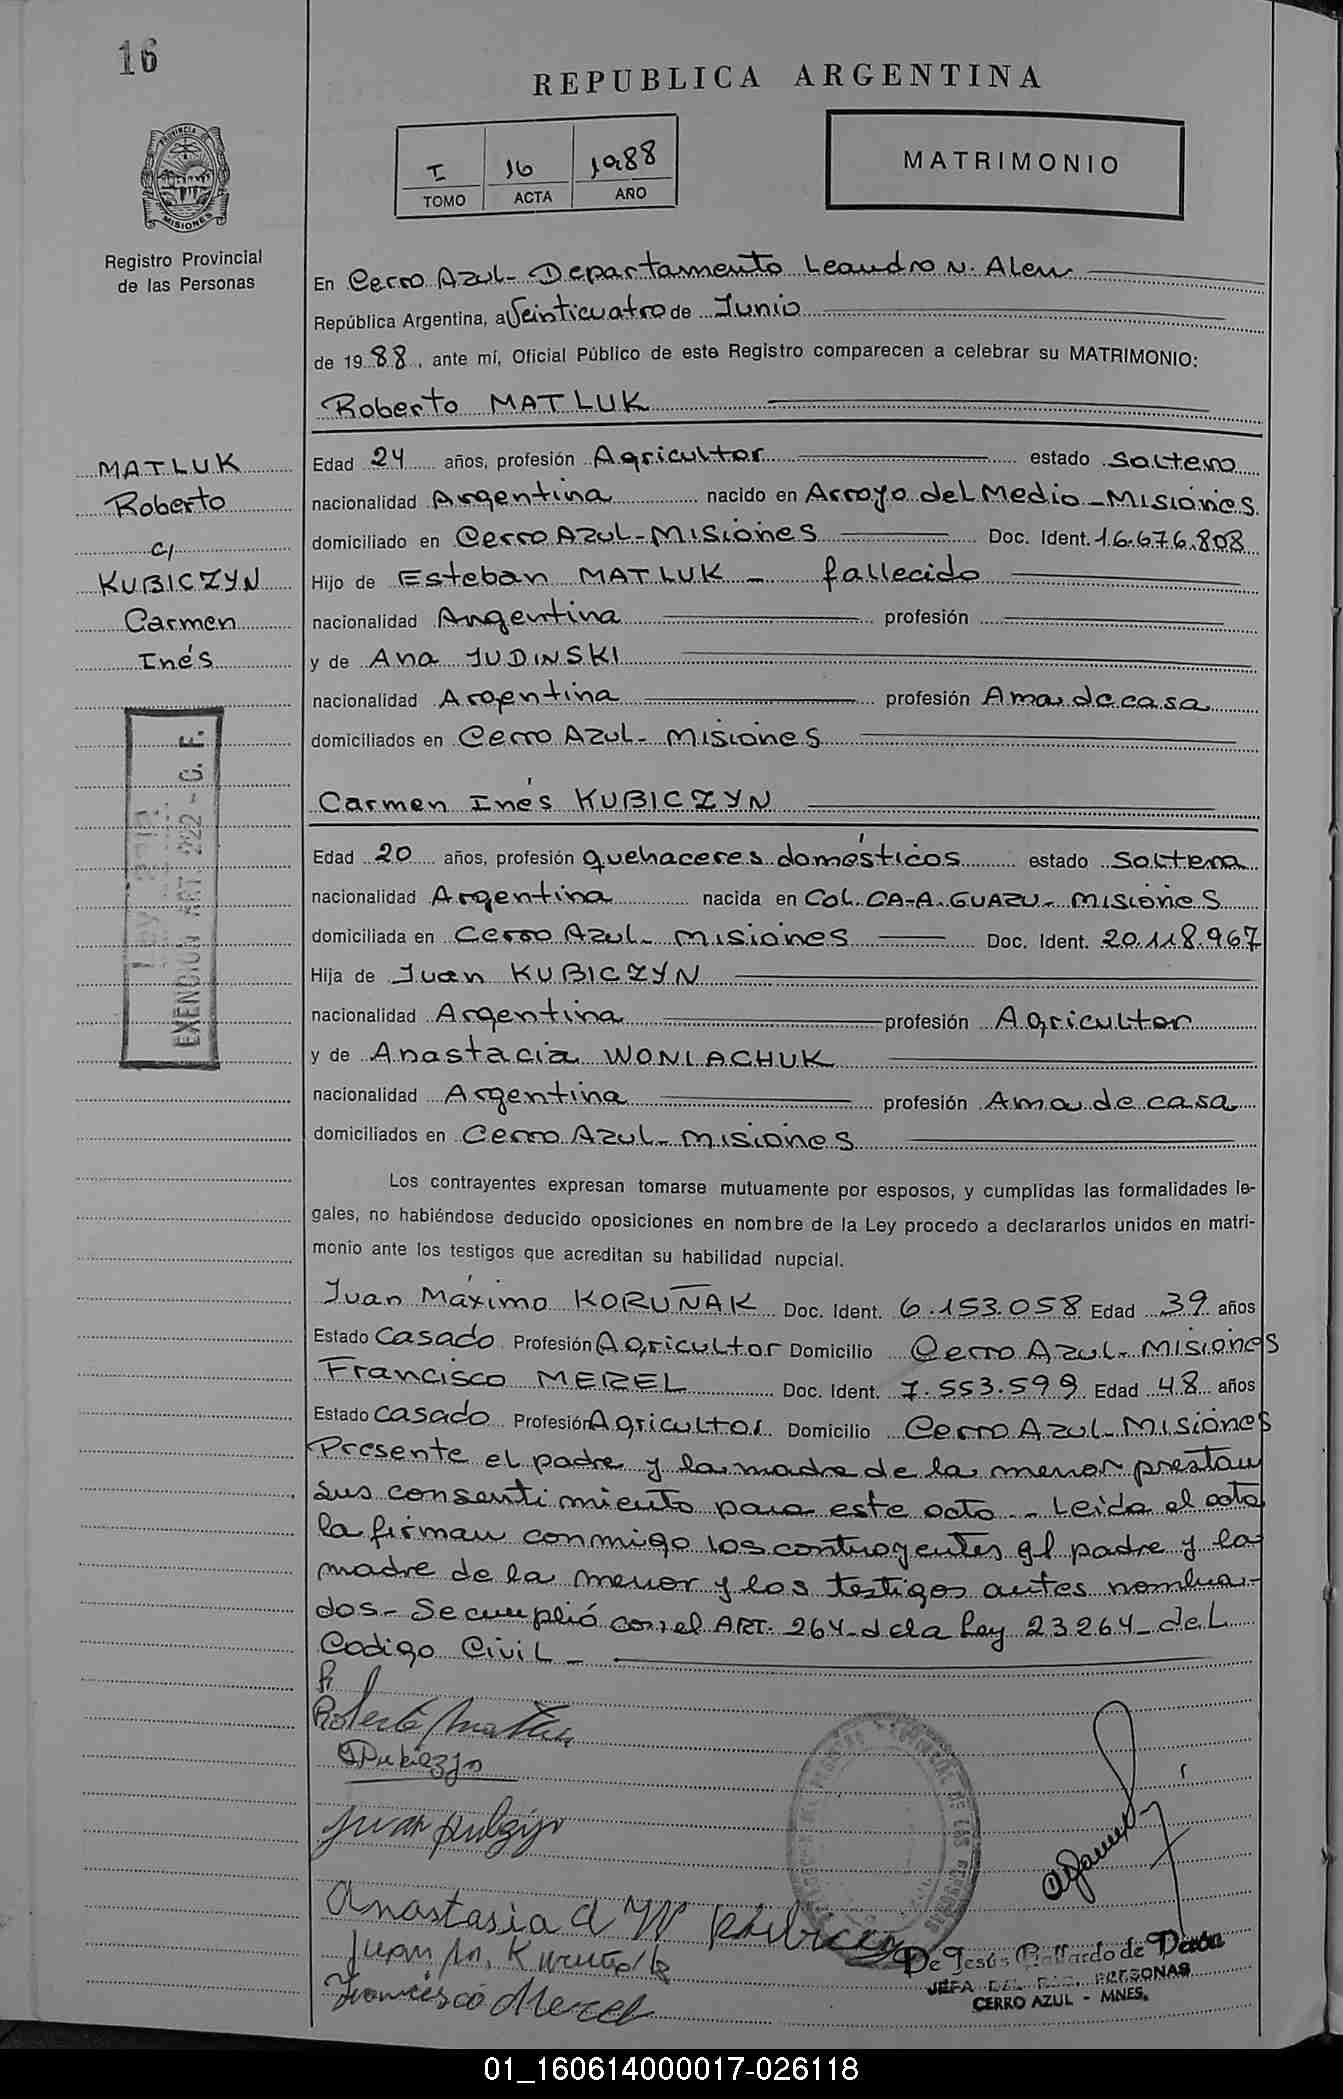 16
REPUBLICA ARGENTINA
I 16 1988
TOMO ACTA AÑO
MATRIMONIO
PROVINCIA DE MISIONES
Registro Provincial
de las Personas
En Cerro Azul- Departamento Leandro N. Alem
República Argentina, a Veinticuatro de Junio
de 1988, ante mí, Oficial Público de este Registro comparecen a celebrar su MATRIMONIO:
Roberto MATLUK
MATLUK
Roberto
c/
KUBICZYN
Carmen
Inés
Edad 24 años, profesión Agricultor estado soltero
nacionalidad Argentina nacido en Arroyo del Medio-Misiones
domiciliado en Cerro Azul-Misiones Doc. Ident. 16.676.808
Hijo de Esteban MATLUK - fallecido
nacionalidad Argentina profesión
y de Ana JUDINSKI
nacionalidad Argentina profesión Ama de casa
domiciliados en Cerro Azul- Misiones
Carmen Inés KUBICZYN
EXENCION ART. 222 - C. F.
Edad 20 años, profesión quehaceres domésticos estado soltera
nacionalidad Argentina nacida en Col. CA-A-GUAZU- Misiones
domiciliada en Cerro Azul- Misiones Doc. Ident. 20.118.967
Hija de Juan KUBICZYN
nacionalidad Argentina profesión Agricultor
y de Anastacia WONIACHUK
nacionalidad Argentina profesión Ama de casa
domiciliados en Cerro Azul- Misiones
Los contrayentes expresan tomarse mutuamente por esposos, y cumplidas las formalidades le-
gales, no habiéndose deducido oposiciones en nombre de la Ley procedo a declararlos unidos en matri-
monio ante los testigos que acreditan su habilidad nupcial.
Juan Máximo KORUÑAK Doc. Ident. 6.153.058 Edad 39 años
Estado Casado Profesión Agricultor Domicilio Cerro Azul- Misiones
Francisco MEREL Doc. Ident. 7.553.599 Edad 48 años
Estado Casado Profesión Agricultor Domicilio Cerro Azul- Misiones
Presente el padre y la madre de la menor prestan
sus consentimiento para este acto.- Leida el acta
la firman conmigo los contrayentes el padre y la
madre de la menor y los testigos antes nombra-
dos- Se cumplió con el ART. 264- de la Ley 23264- del
Codigo Civil -
Roberto Matluk
Anastasia d W
Juan M.
Francisco Merel
De Jesús Gallardo de Derón
JEFA DEL REG. PERSONAS
CERRO AZUL - MNES.
01_160614000017-026118